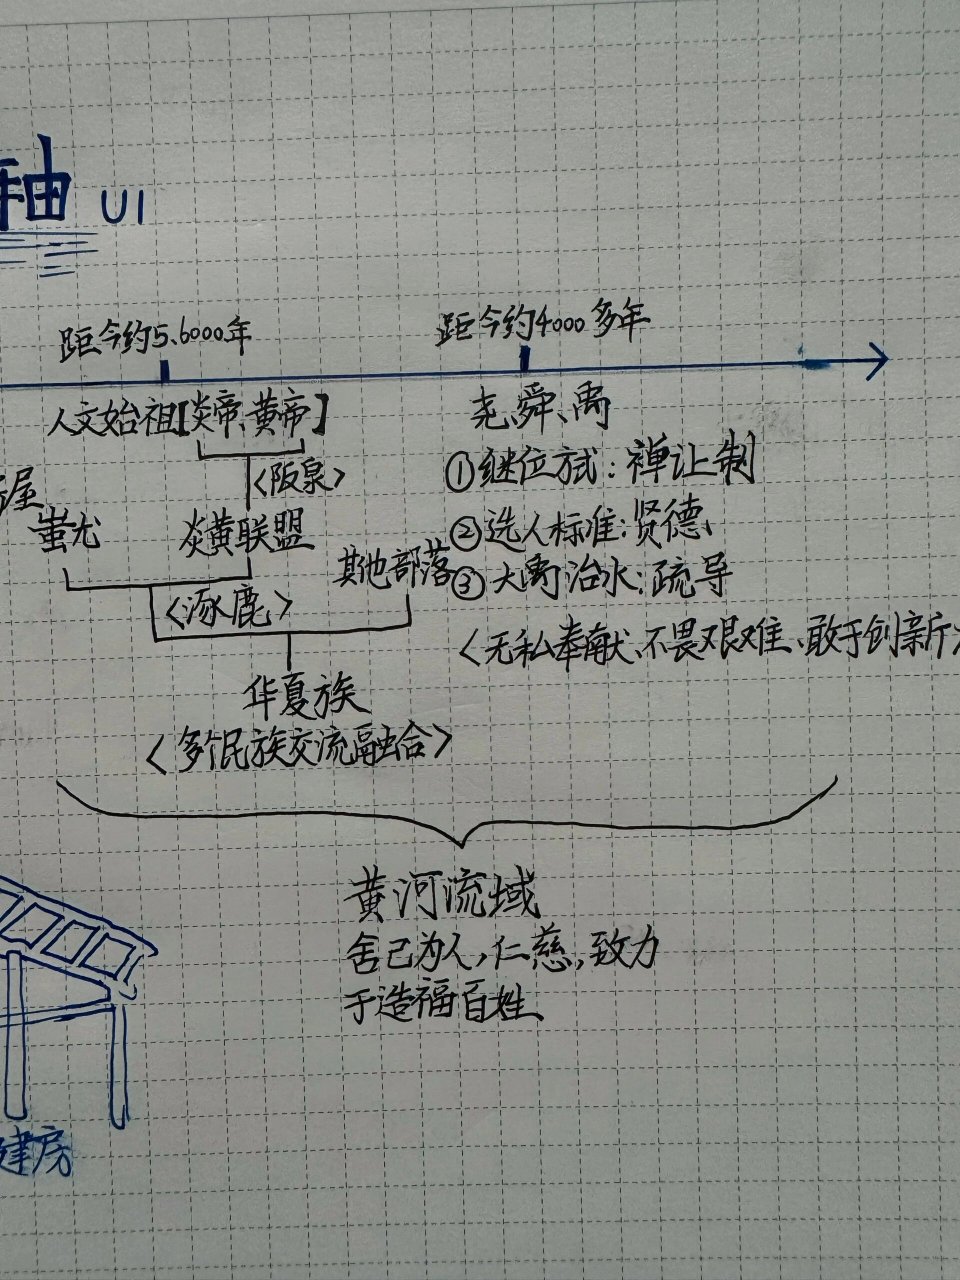 轴 U1
距今约5、6000年
距今约4000多年
人文始祖[炎帝、黄帝]
尧、舜、禹
<阪泉>
①继位方式:禅让制
屋
蚩尤
炎黄联盟
②选人标准:贤德
其他部落
③大禹治水:疏导
<涿鹿>
<无私奉献、不畏艰难、敢于创新
华夏族
<多个民族交流融合>
黄河流域
舍己为人,仁慈,致力
于造福百姓
建房